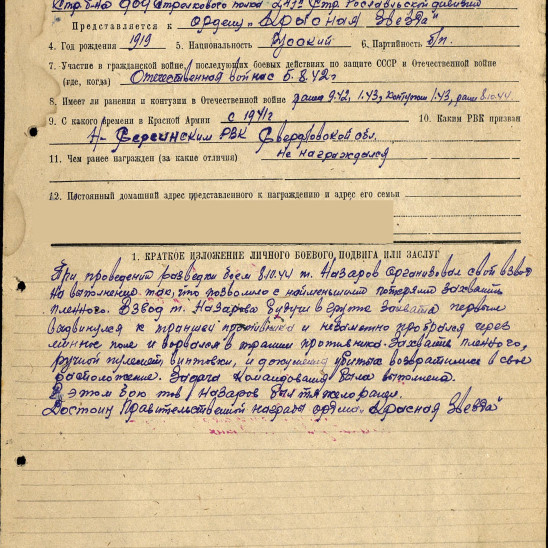 Стр. б-на 909 Стрелкового полка 247 Стр. Рославльской дивизии
Представляется к Ордену „Красная Звезда"
4. Год рождения 1919 5. Национальность Русский 6. Партийность б/п.
7. Участие в гражданской войне, последующих боевых действиях по защите СССР и Отечественной войне
(где, когда) Отечественная война с 5.8.42г
8. Имеет ли ранения и контузии в Отечественной войне ранен 9.42, 1.43, контужен 1.43, ранен 8.10.44
9. С какого времени в Красной Армии с 1941г 10. Каким РВК призван
Н-Сергинским РВК Свердловской обл.
11. Чем ранее награжден (за какие отличия) не награждался
12. Постоянный домашний адрес представленного к награждению и адрес его семьи
1. КРАТКОЕ ИЗЛОЖЕНИЕ ЛИЧНОГО БОЕВОГО ПОДВИГА ИЛИ ЗАСЛУГ
При проведении разведки боем 8.10.44 т. Назаров организовал свой взвод
на выполнение так, что позволило с наименьшими потерями захватить
пленного. Взвод т. Назарова будучи в группе захвата первым
выдвинулся к траншеи противника и незаметно пробрался через
минное поле и ворвался в траншеи противника. Захватив пленного,
ручной пулемет, винтовки, и документы убитых возвратился в свое
расположение. Задача командования была выполнена.
В этом бою тов Назаров был тяжело ранен.
Достоин Правительственной награды ордена „Красная Звезда"